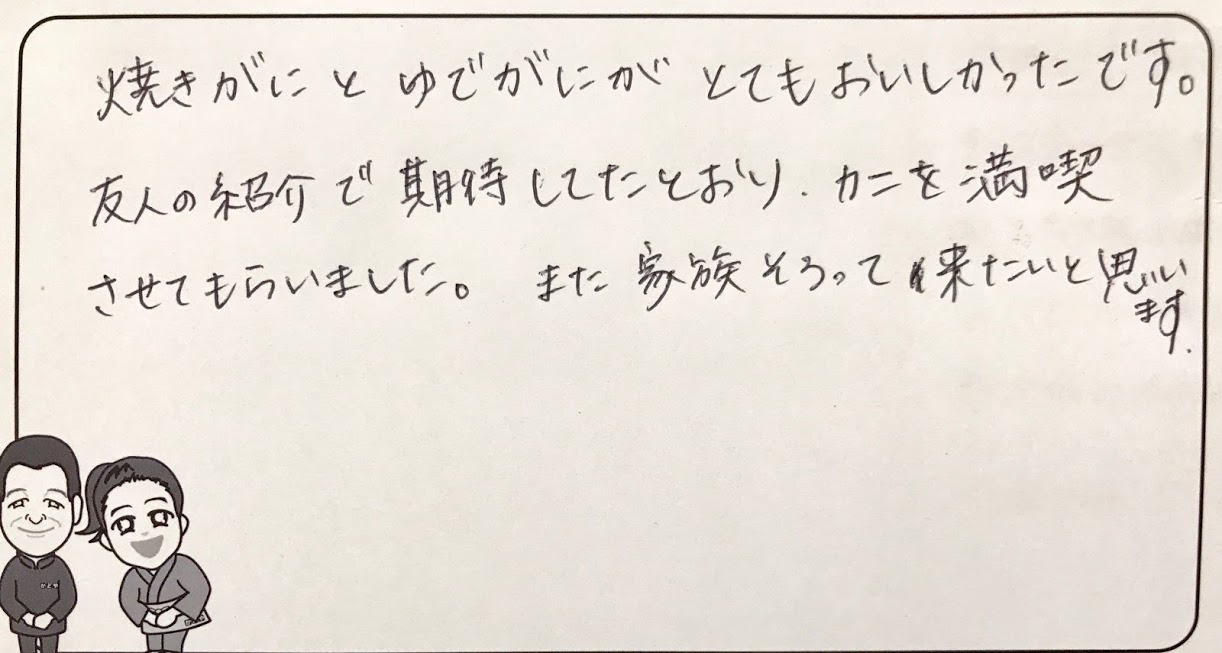 焼きがにと ゆでがにが とてもおいしかったです。
友人の紹介で期待してたとおり、カニを満喫
させてもらいました。 また家族そろって来たいと思い
ます.